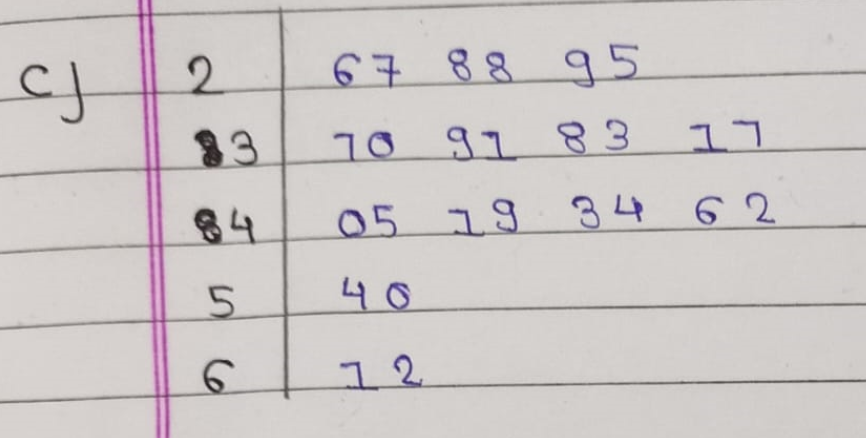 c) 2 67 88 95
3 70 91 83 17
4 05 19 34 62
5 40
6 12